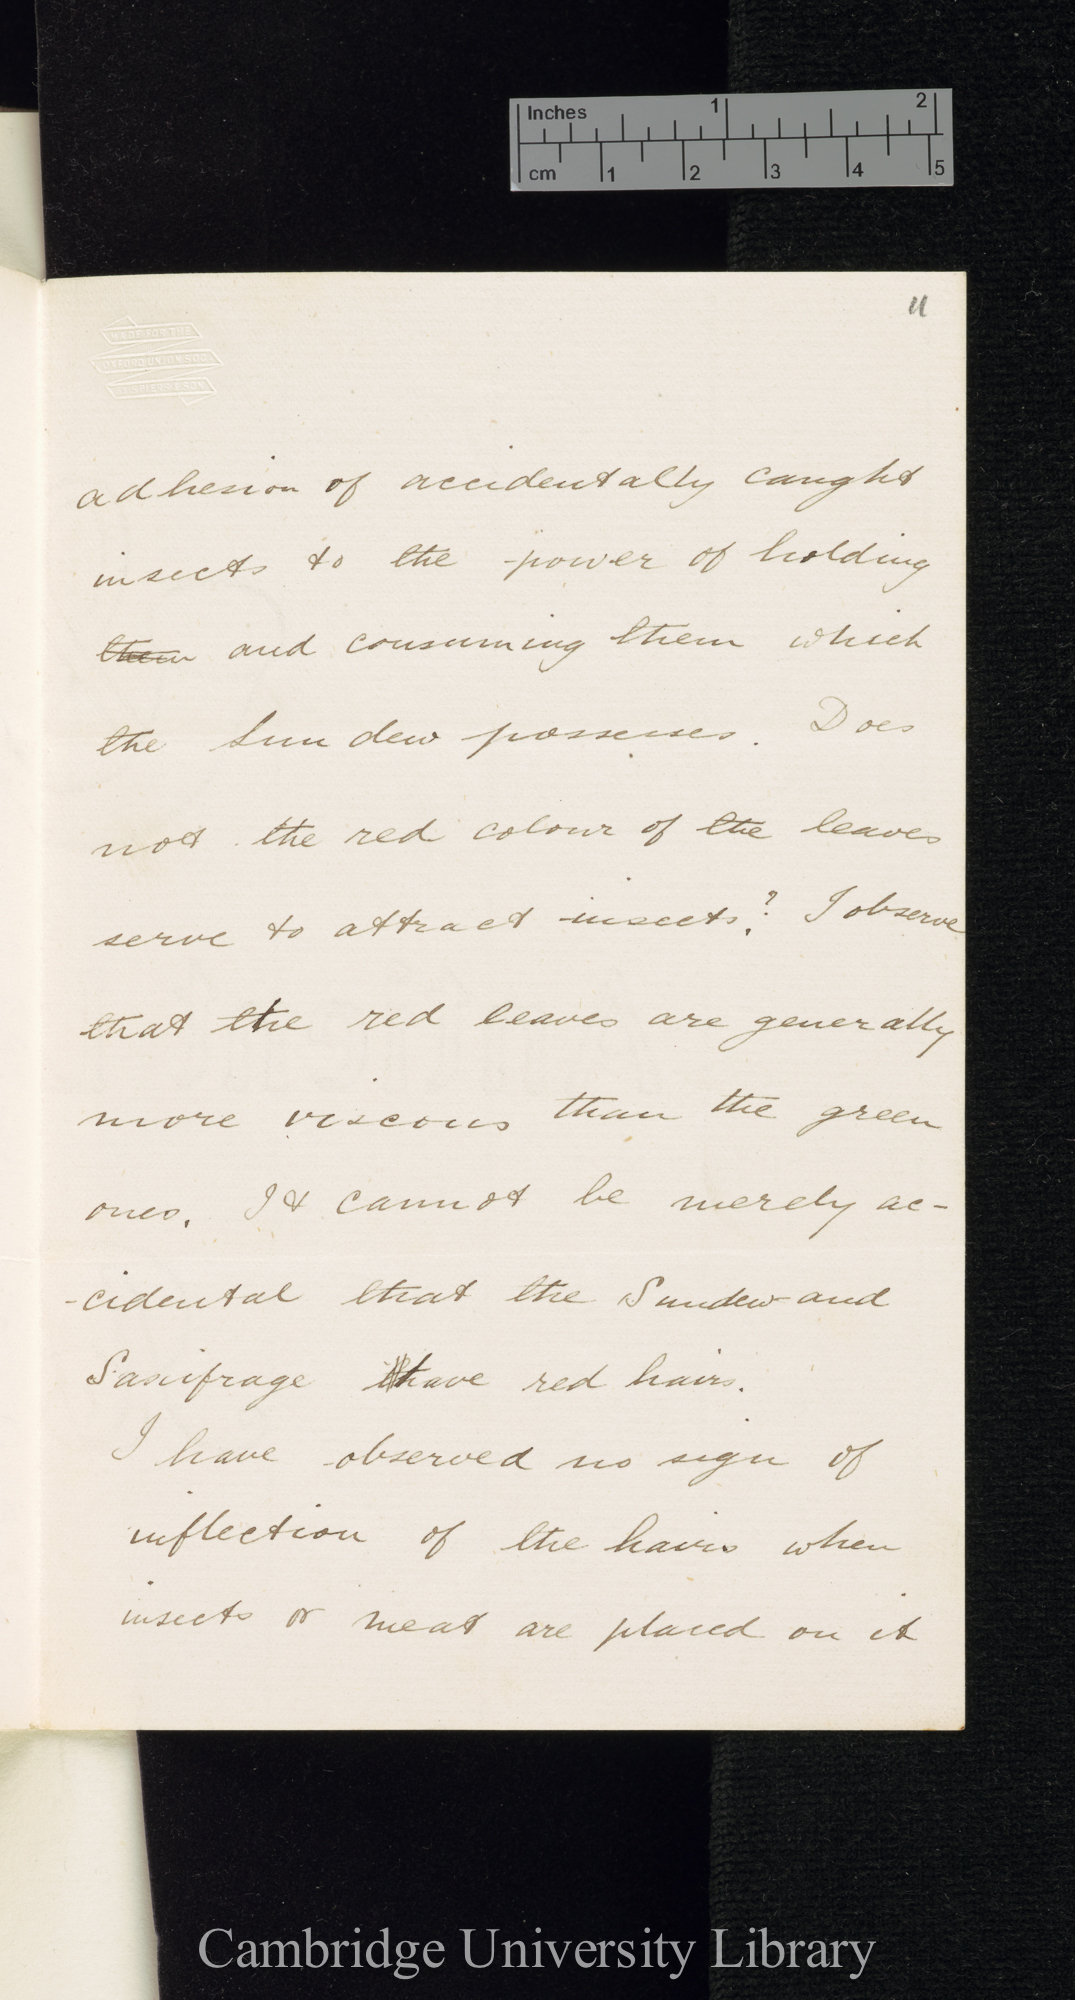 Inches 1 2
cm 1 2 3 4 5
11
MADE FOR THE
OXFORD UNION SOC
SPIERS & SON
adhesion of accidentally caught
insects to the power of holding
them and consuming them which
the Sundew possesses. Does
not the red colour of the leaves
serve to attract insects? I observe
that the red leaves are generally
more viscous than the green
ones. It cannot be merely ac-
-cidental that the Sundew and
Saxifrage have red hairs.
I have observed no sign of
inflection of the hairs when
insects or meat are placed on it
Cambridge University Library